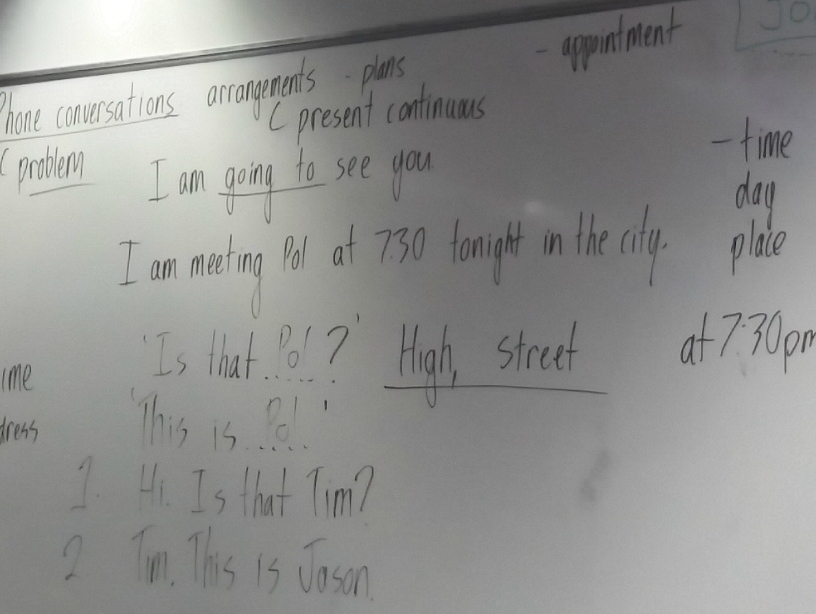 Phone conversations arrangements - plans - appointment
( problem ( present continuous
I am going to see you
- time
day
place
I am meeting Pol at 7.30 tonight in the city.
'Is that Pol?' High, Street at 7:30pm
'This is Pol.'
1. Hi. Is that Tim?
2 Tim. This is Jason.